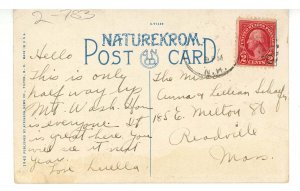 2-753
NATUREKROM
POST CARD
Hello
This is only
half way by
Mt Wash. You
is everyone. It
is great here you
will see it next
year.
Love Luella
The M
Anna & Lillian Schaf
185 E. Milton St
Readville
Mass.
N.H.
2 CENTS 2